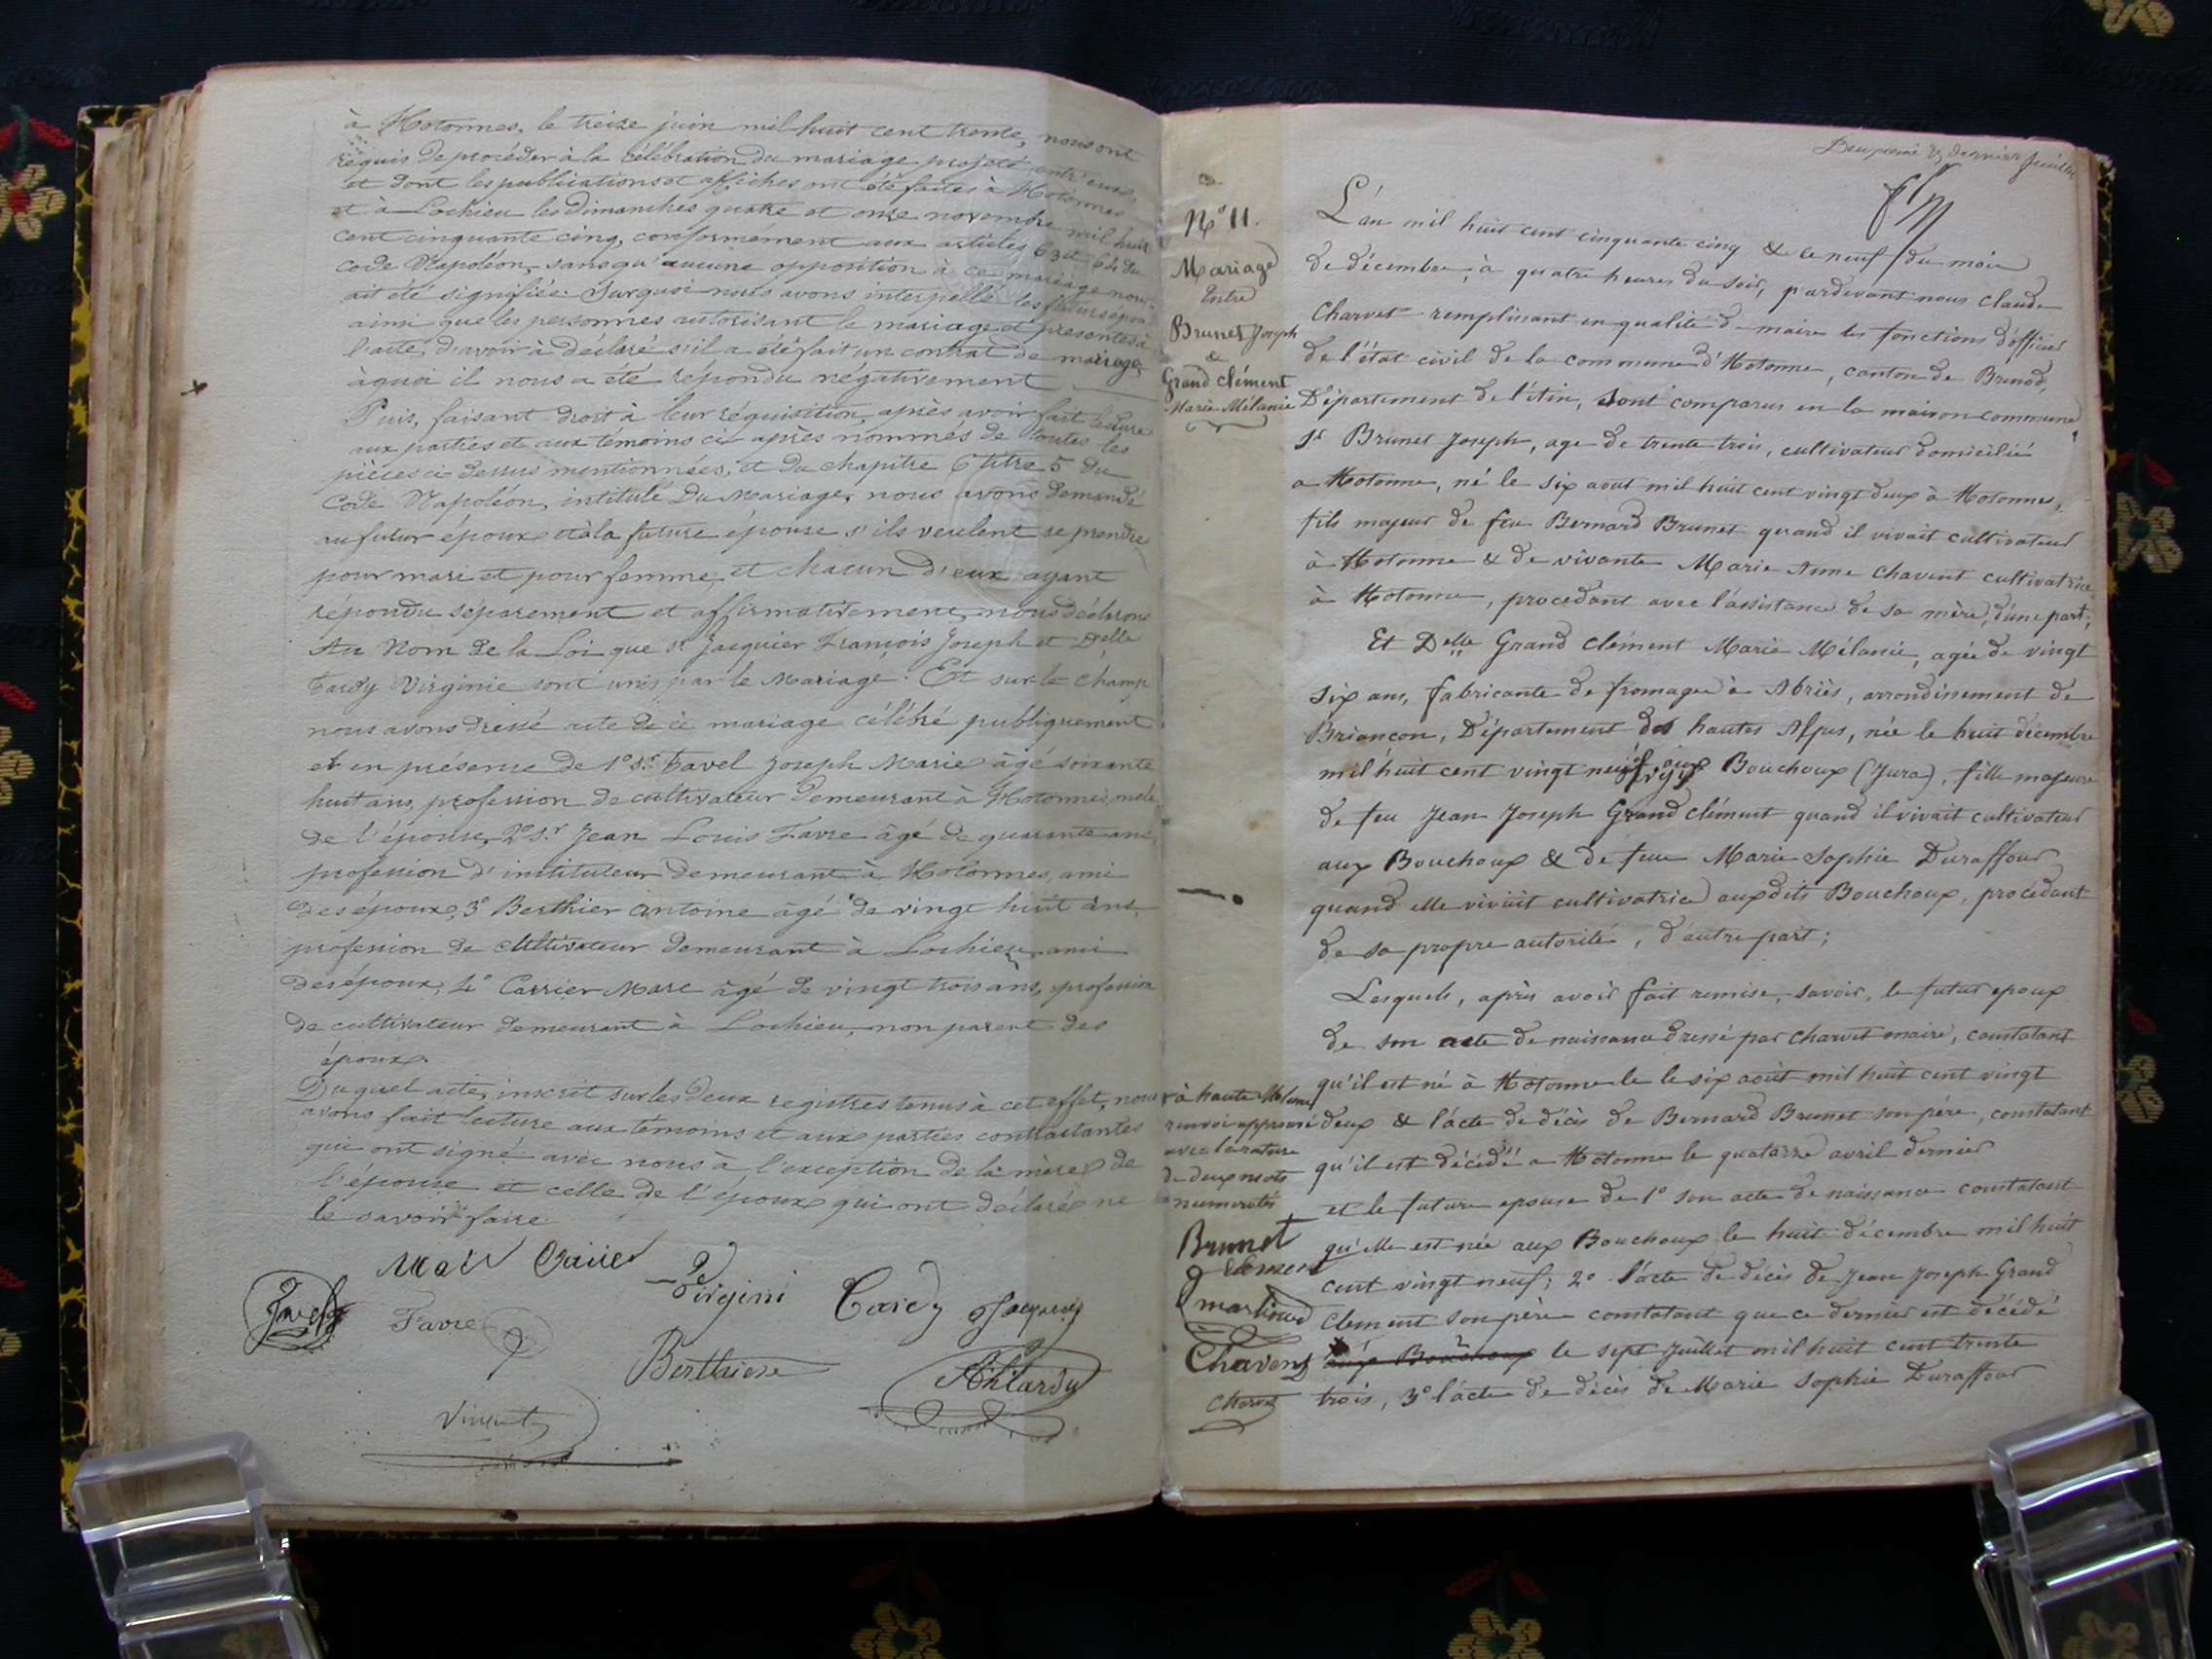 à Hotonnes, le treize juin mil huit cent trente, nous ont
requis de procéder à la célébration du mariage projeté entr'eux
et dont les publications et affiches ont été faites à Hotonnes
et à Lochieu les dimanches quatre et onze novembre mil huit
cent cinquante cinq, conformément aux articles 63 et 64 du
code Napoléon, sans qu'aucune opposition à ce mariage nous
ait été signifiée. Surquoi nous avons interpellé les futurs époux
ainsi que les personnes autorisant le mariage et présentes à
l'acte, d'avoir à déclaré s'il a été fait un contrat de mariage
à quoi il nous a été répondu négativement
Puis, faisant droit à leur réquisition, après avoir fait lecture
aux parties et aux témoins ci après nommés de toutes les
pièces ci dessus mentionnées, et du chapitre 6 titre 5 du
Code Napoléon, intitulé Du Mariage, nous avons demandé
au futur époux et à la future épouse s'ils veulent se prendre
pour mari et pour femme, et chacun d'eux ayant
répondu séparement et affirmativement, nous déclarons
Au Nom de la Loi que sr Jacquier François Joseph et Delle
Tardy Virginie sont unis par le Mariage. Et sur le champ
nous avons dressé acte de ce mariage célébré publiquement
et en présence de 1° sr. Favel Joseph Marie âgé soixante
huit ans, profession de cultivateur demeurant à Hotonnes, oncle
de l'épouse, 2° sr. Jean Louis Favre âgé de quarante ans,
profession d'instituteur demeurant à Hotonnes, ami
des époux, 3° Berthier Antoine âgé de vingt huit ans,
profession de cultivateur demeurant à Lochieu, ami
des époux, 4° Carrier Marc âgé de vingt trois ans, profession
de cultivateur demeurant à Lochieu, non parent des
époux.
Duquel acte, inscrit sur les deux registres tenus à cet effet, nous
avons fait lecture aux témoins et aux parties contractantes
qui ont signé avec nous à l'exception de la mère de
l'épouse et celle de l'époux qui ont déclaré ne
le savoir faire
Virgini Tardy Jacquier
Favre
Berthier
Vincent
Deuxième & dernier feuillet
N° 11.
Mariage
Entre
Brunet Joseph
&
Grand Clément
Marie Mélanie
L'an mil huit cent cinquante cinq & le neuf du mois
de décembre, à quatre heures du soir, pardevant nous Claude
Charvet remplissant en qualité de maire les fonctions d'officier
de l'état civil de la commune d'Hotonne, canton de Brenod,
Département de l'Ain, sont comparus en la maison commune
sr Brunet Joseph, age de trente trois, cultivateur domicilié
a Hotonne, né le six aout mil huit cent vingt deux à Hotonnes,
fils majeur de feu Bernard Brunet quand il vivait cultivateur
à Hotonne & de vivante Marie Anne Chavent cultivatrice
à Hotonne, procedant avec l'assistance de sa mère, d'une part;
Et Delle Grand Clément Marie Mélanie, agée de vingt
six ans, fabricante de fromage à Abriès, arrondissement de
Briancon, Département des hautes Alpes, née le huit décembre
mil huit cent vingt neuf aux Bouchoux (Jura), fille majeure
de feu Jean Joseph Grand clément quand il vivait cultivateur
aux Bouchoux & de feue Marie Sophie Duraffour
quand elle vivait cultivatrice auxdits Bouchoux, procédant
de sa propre autorité, d'autre part;
Lesquels, après avoir fait remise, savoir, le futur epoux
de son acte de naissance dressé par Charvet maire, constatant
qu'il est né à Hotonne le le six août mil huit cent vingt
deux & l'acte de décès de Bernard Brunet son père, constatant
qu'il est décédé a Hotonne le quatorze avril dernier
et la future epouse de 1° son acte de naissance constatant
qu'elle est née aux Bouchoux le huit décembre mil huit
cent vingt neuf; 2° l'acte de décès de Jean Joseph Grand
Clement son père constatant que ce dernier est décédé
aux Bouchoux le sept Juillet mil huit cent trente
trois, 3° l'acte de décès de Marie Sophie Duraffour
renvoi approuvé
avec la rature
de deux mots
Brunet
clement
Chavent
Charvet